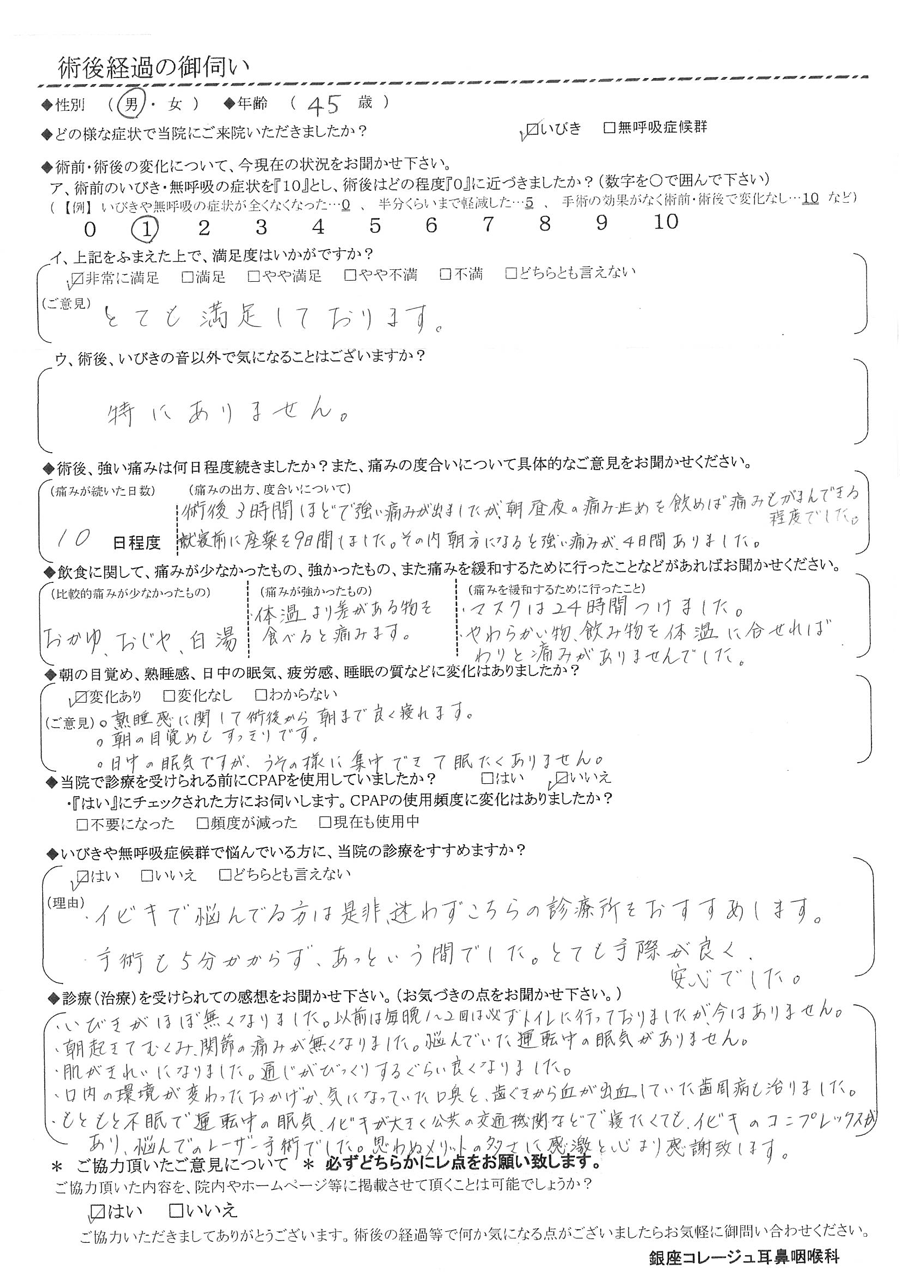 術後経過の御伺い
◆性別 ( 男 ・ 女 ) ◆年齢 ( 45 歳 )
◆どの様な症状で当院にご来院いただきましたか? ☑いびき □無呼吸症候群
◆術前・術後の変化について、今現在の状況をお聞かせ下さい。
ア、術前のいびき・無呼吸の症状を『10』とし、術後はどの程度『0』に近づきましたか?(数字を〇で囲んで下さい)
(【例】いびきや無呼吸の症状が全くなくなった…0 、 半分くらいまで軽減した…5 、 手術の効果がなく術前・術後で変化なし…10 など)
0 1 2 3 4 5 6 7 8 9 10
イ、上記をふまえた上で、満足度はいかがですか?
☑非常に満足 □満足 □やや満足 □やや不満 □不満 □どちらとも言えない
(ご意見) とても満足しております。
ウ、術後、いびきの音以外で気になることはございますか?
特にありません。
◆術後、強い痛みは何日程度続きましたか?また、痛みの度合いについて具体的なご意見をお聞かせください。
(痛みが続いた日数) (痛みの出方、度合いについて)
術後3時間ほどで強い痛みが出ましたが、朝昼夜の痛み止めを飲めば痛みもがまんできる
程度でした。
10 日程度 就寝前に座薬を9日間しました。その内朝方になると強い痛みが、4日間ありました。
◆飲食に関して、痛みが少なかったもの、強かったもの、また痛みを緩和するために行ったことなどがあればお聞かせください。
(比較的痛みが少なかったもの) (痛みが強かったもの) (痛みを緩和するために行ったこと)
おかゆ、おじや、白湯
体温より差がある物を
食べると痛みます。
・マスクは24時間つけました。
・やわらかい物、飲み物を体温に合せれば
わりと痛みがありませんでした。
◆朝の目覚め、熟睡感、日中の眠気、疲労感、睡眠の質などに変化はありましたか?
☑変化あり □変化なし □わからない
(ご意見)。熟睡感に関して術後から朝まで良く寝れます。
。朝の目覚めもすっきりです。
。日中の眠気ですが、うその様に集中できて眠たくありません。
◆当院で診療を受けられる前にCPAPを使用していましたか? □はい ☑いいえ
・『はい』にチェックされた方にお伺いします。CPAPの使用頻度に変化はありましたか?
□不要になった □頻度が減った □現在も使用中
◆いびきや無呼吸症候群で悩んでいる方に、当院の診療をすすめますか?
☑はい □いいえ □どちらとも言えない
(理由) ・イビキで悩んでる方は是非、迷わずこちらの診療所をおすすめします。
・手術も5分かからず、あっという間でした。とても手際が良く、
安心でした。
◆診療(治療)を受けられての感想をお聞かせ下さい。(お気づきの点をお聞かせ下さい。)
・いびきがほぼ無くなりました。以前は毎晩1~2回は必ずトイレに行っておりましたが、今はありません。
・朝起きてむくみ、関節の痛みが無くなりました。悩んでいた運転中の眠気がありません。
・肌がきれいになりました。通じがびっくりするぐらい良くなりました。
・口内の環境が変わったおかげか、気になっていた口臭と、歯ぐきから血が出血していた歯周病も治りました。
・もともと不眠で運転中の眠気、イビキが大きく公共の交通機関などで寝たくても、イビキのコンプレックスが
あり、悩んでのレーザー手術でした。思わぬメリットの多さに感激と心より感謝致します。
＊ ご協力頂いたご意見について ＊ 必ずどちらかにレ点をお願い致します。
ご協力頂いた内容を、院内やホームページ等に掲載させて頂くことは可能でしょうか?
☑はい □いいえ
ご協力いただきましてありがとうございます。術後の経過等で何か気になる点がございましたらお気軽に御問い合わせください。
銀座コレージュ耳鼻咽喉科